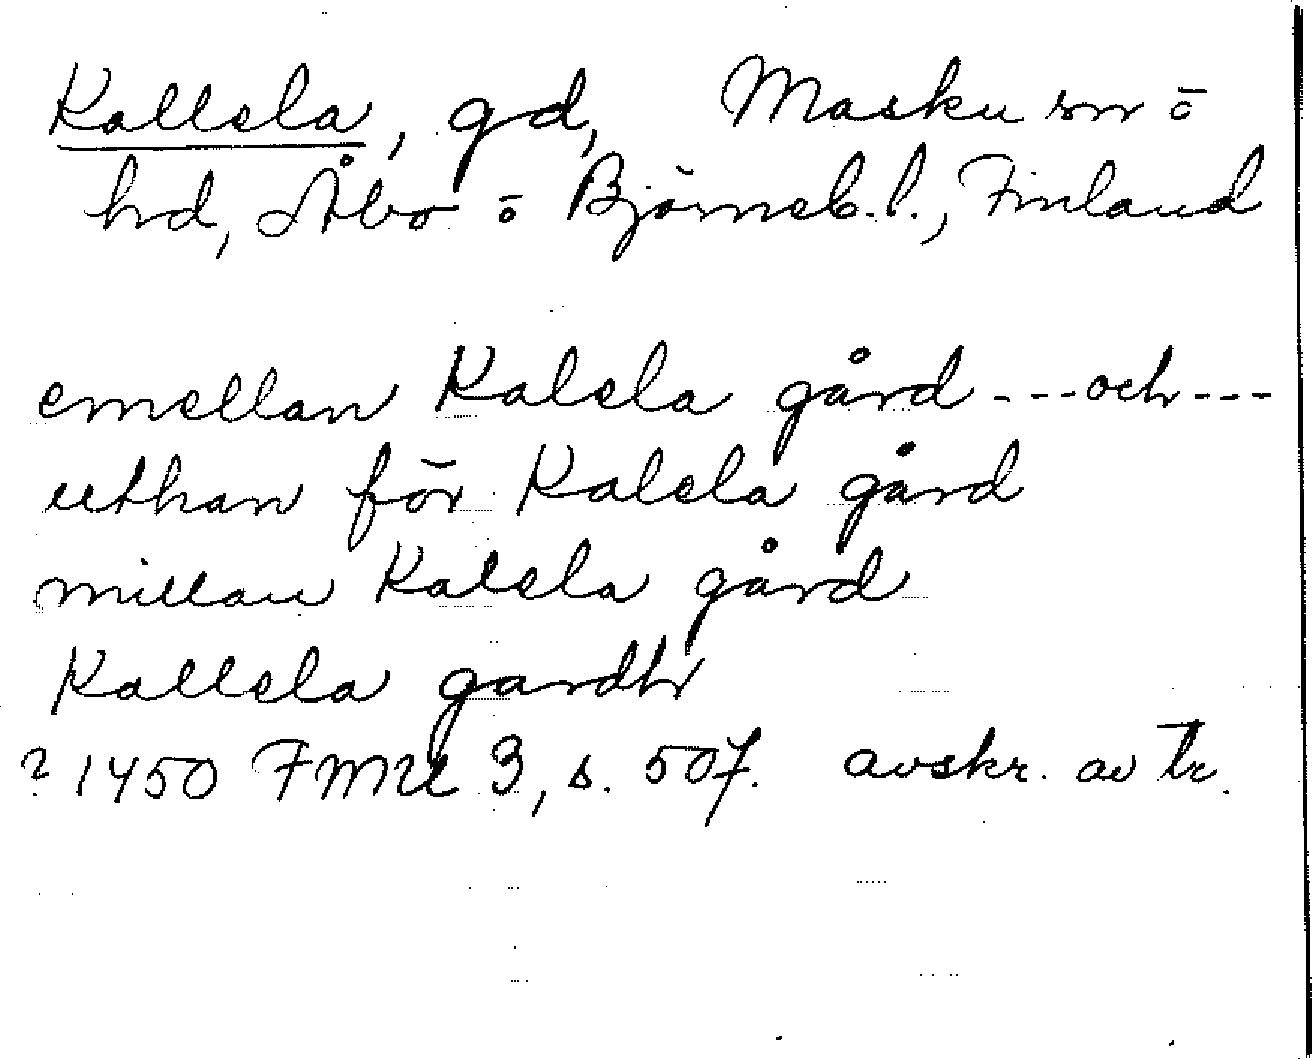 Kallela, gd, Masku sn o
hd, Åbo o Björneb. l., Finland
emellan Kalela gård --- och ---
uthan för Kalela gård
millan Kalela gård
Kallela gardhr
? 1450 FMU 3, s. 507. avskr. av tr.